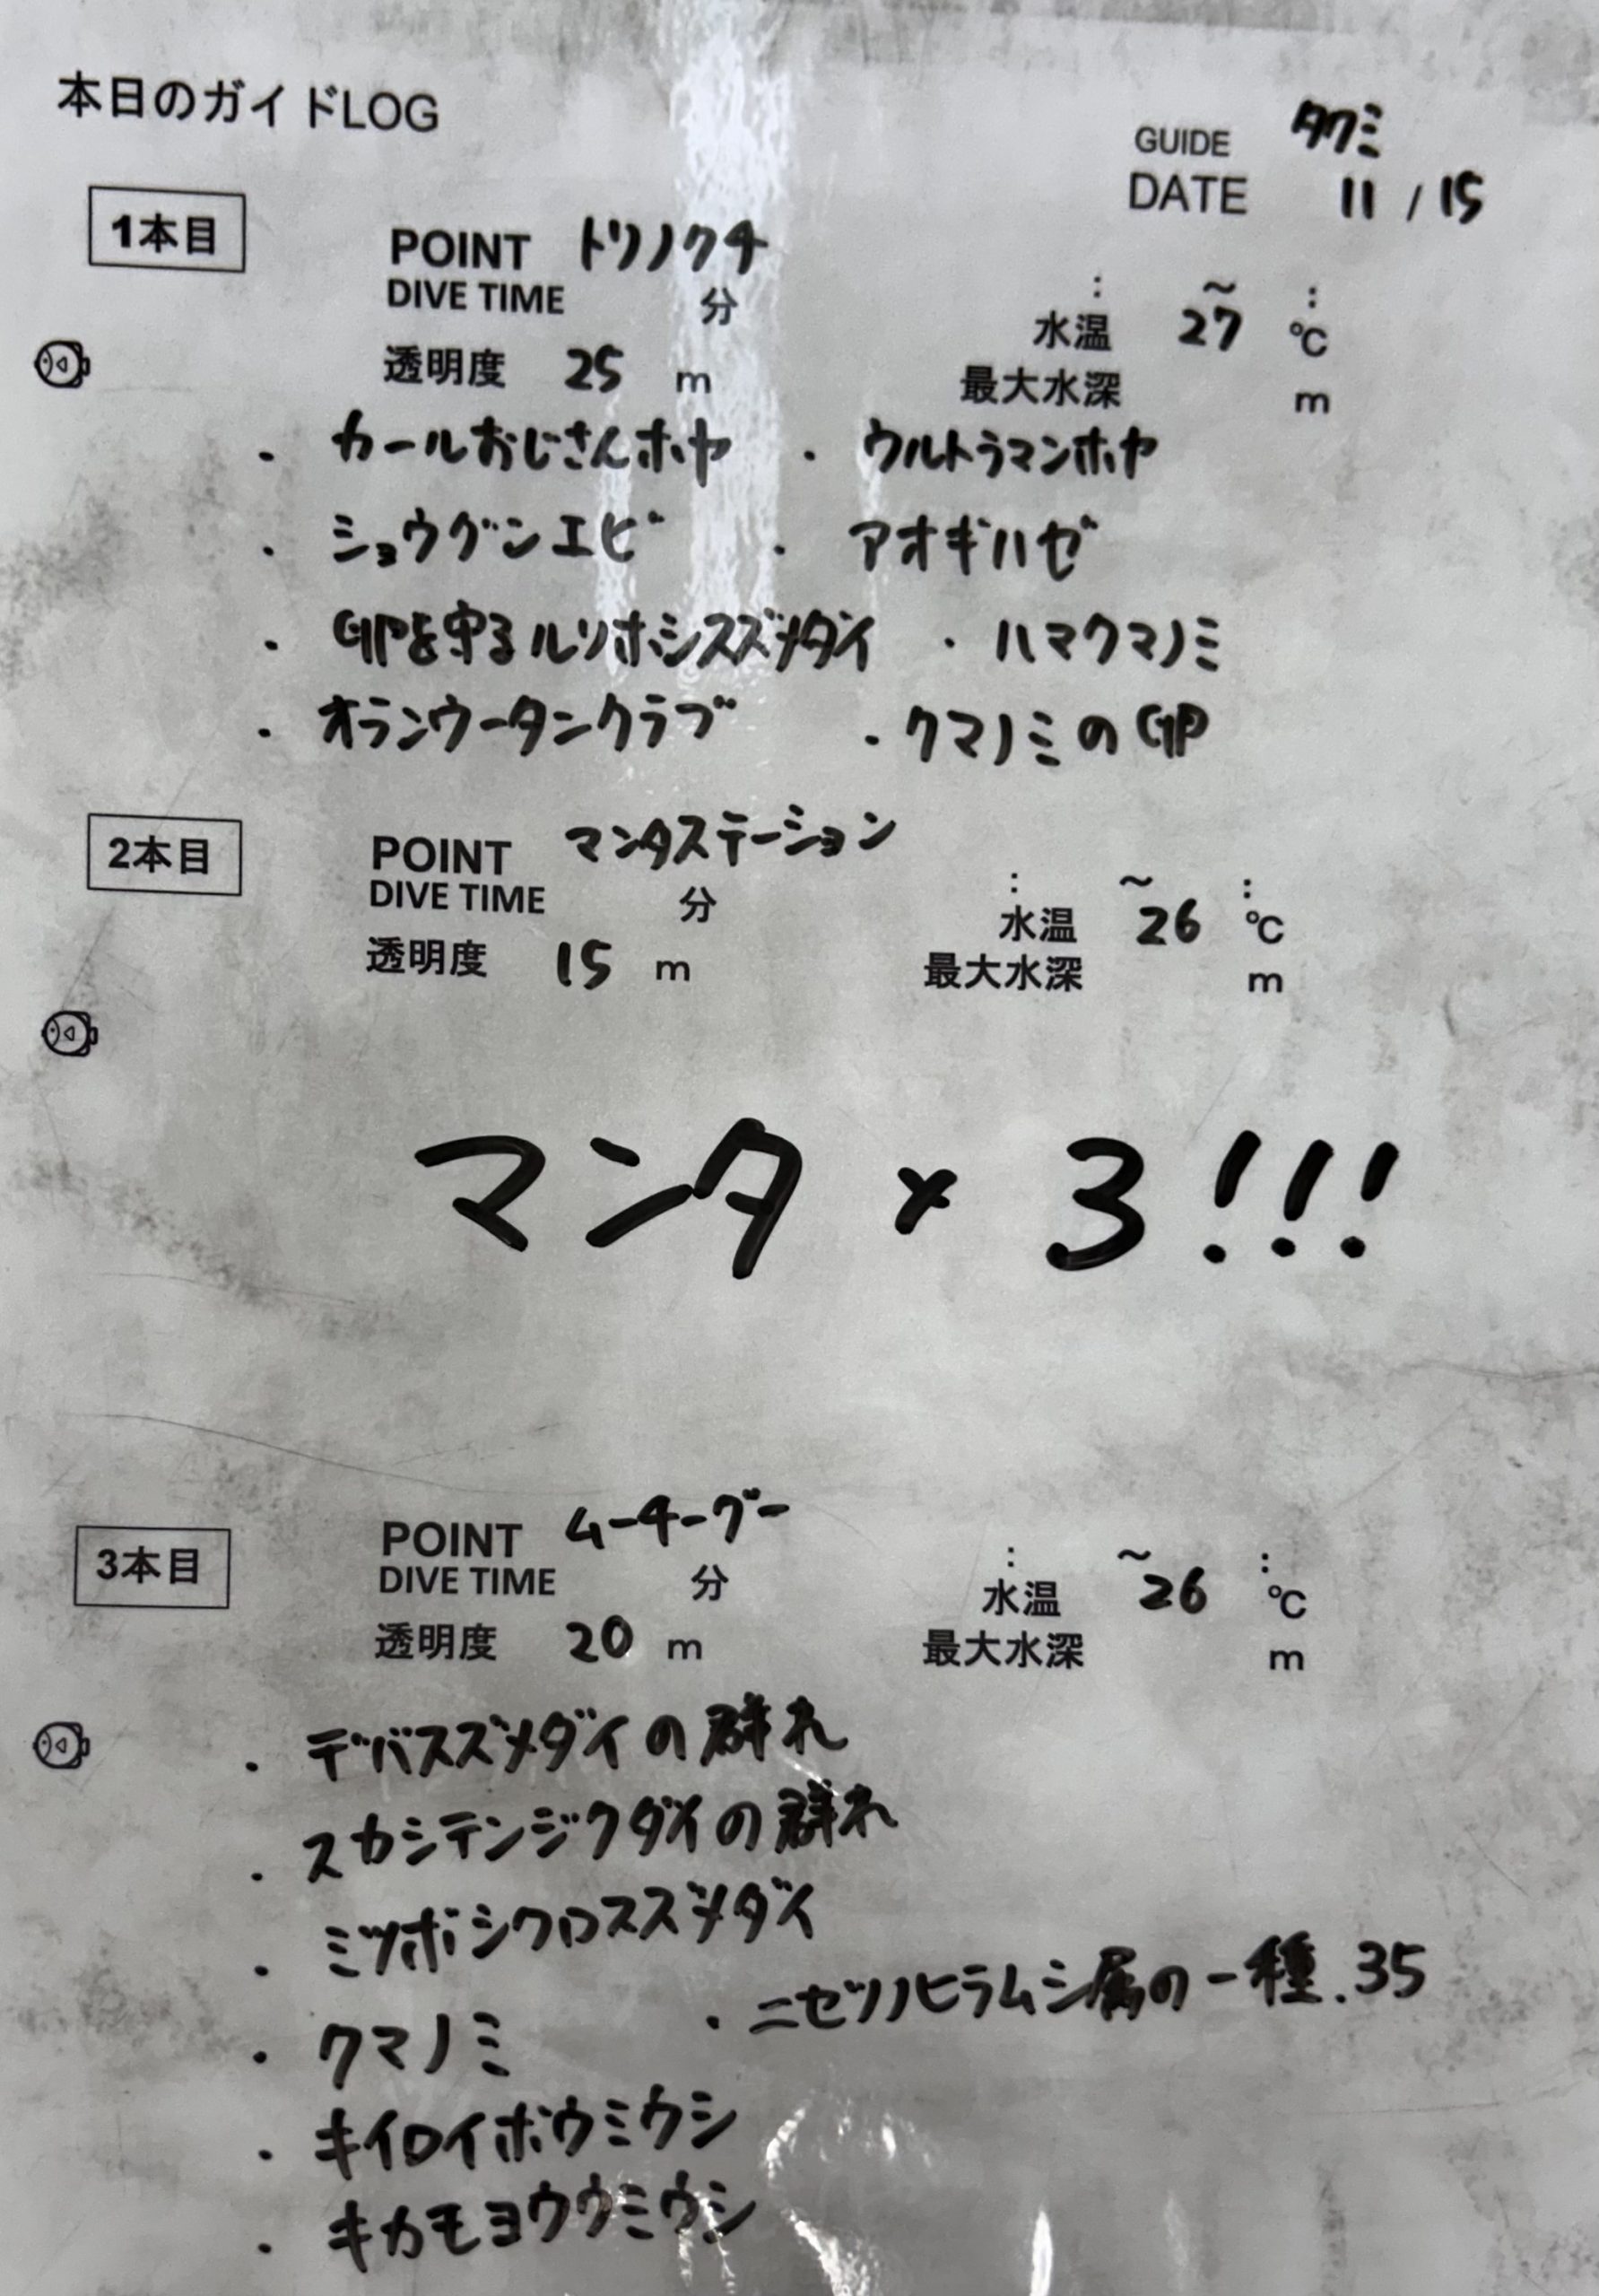 本日のガイドLOG
GUIDE タクミ
DATE 11 / 15
1本目
POINT トリノクチ
DIVE TIME 分 : ～ :
水温 27 ℃
透明度 25 m
最大水深 m
・カールおじさんホヤ ・ウルトラマンホヤ
・ショウグンエビ ・アオギハゼ
・卵を守るルリホシスズメダイ ・ハマクマノミ
・オランウータンクラブ ・クマノミの卵
2本目
POINT マンタステーション
DIVE TIME 分 : ～ :
水温 26 ℃
透明度 15 m
最大水深 m
マンタ × 3!!!
3本目
POINT ムーチーグー
DIVE TIME 分 : ～ :
水温 26 ℃
透明度 20 m
最大水深 m
・デバスズメダイの群れ
・スカシテンジクダイの群れ
・ミツボシクロスズメダイ
・クマノミ ・ニセツノヒラムシ属の一種.35
・キイロイボウミウシ
・キカモヨウウミウシ